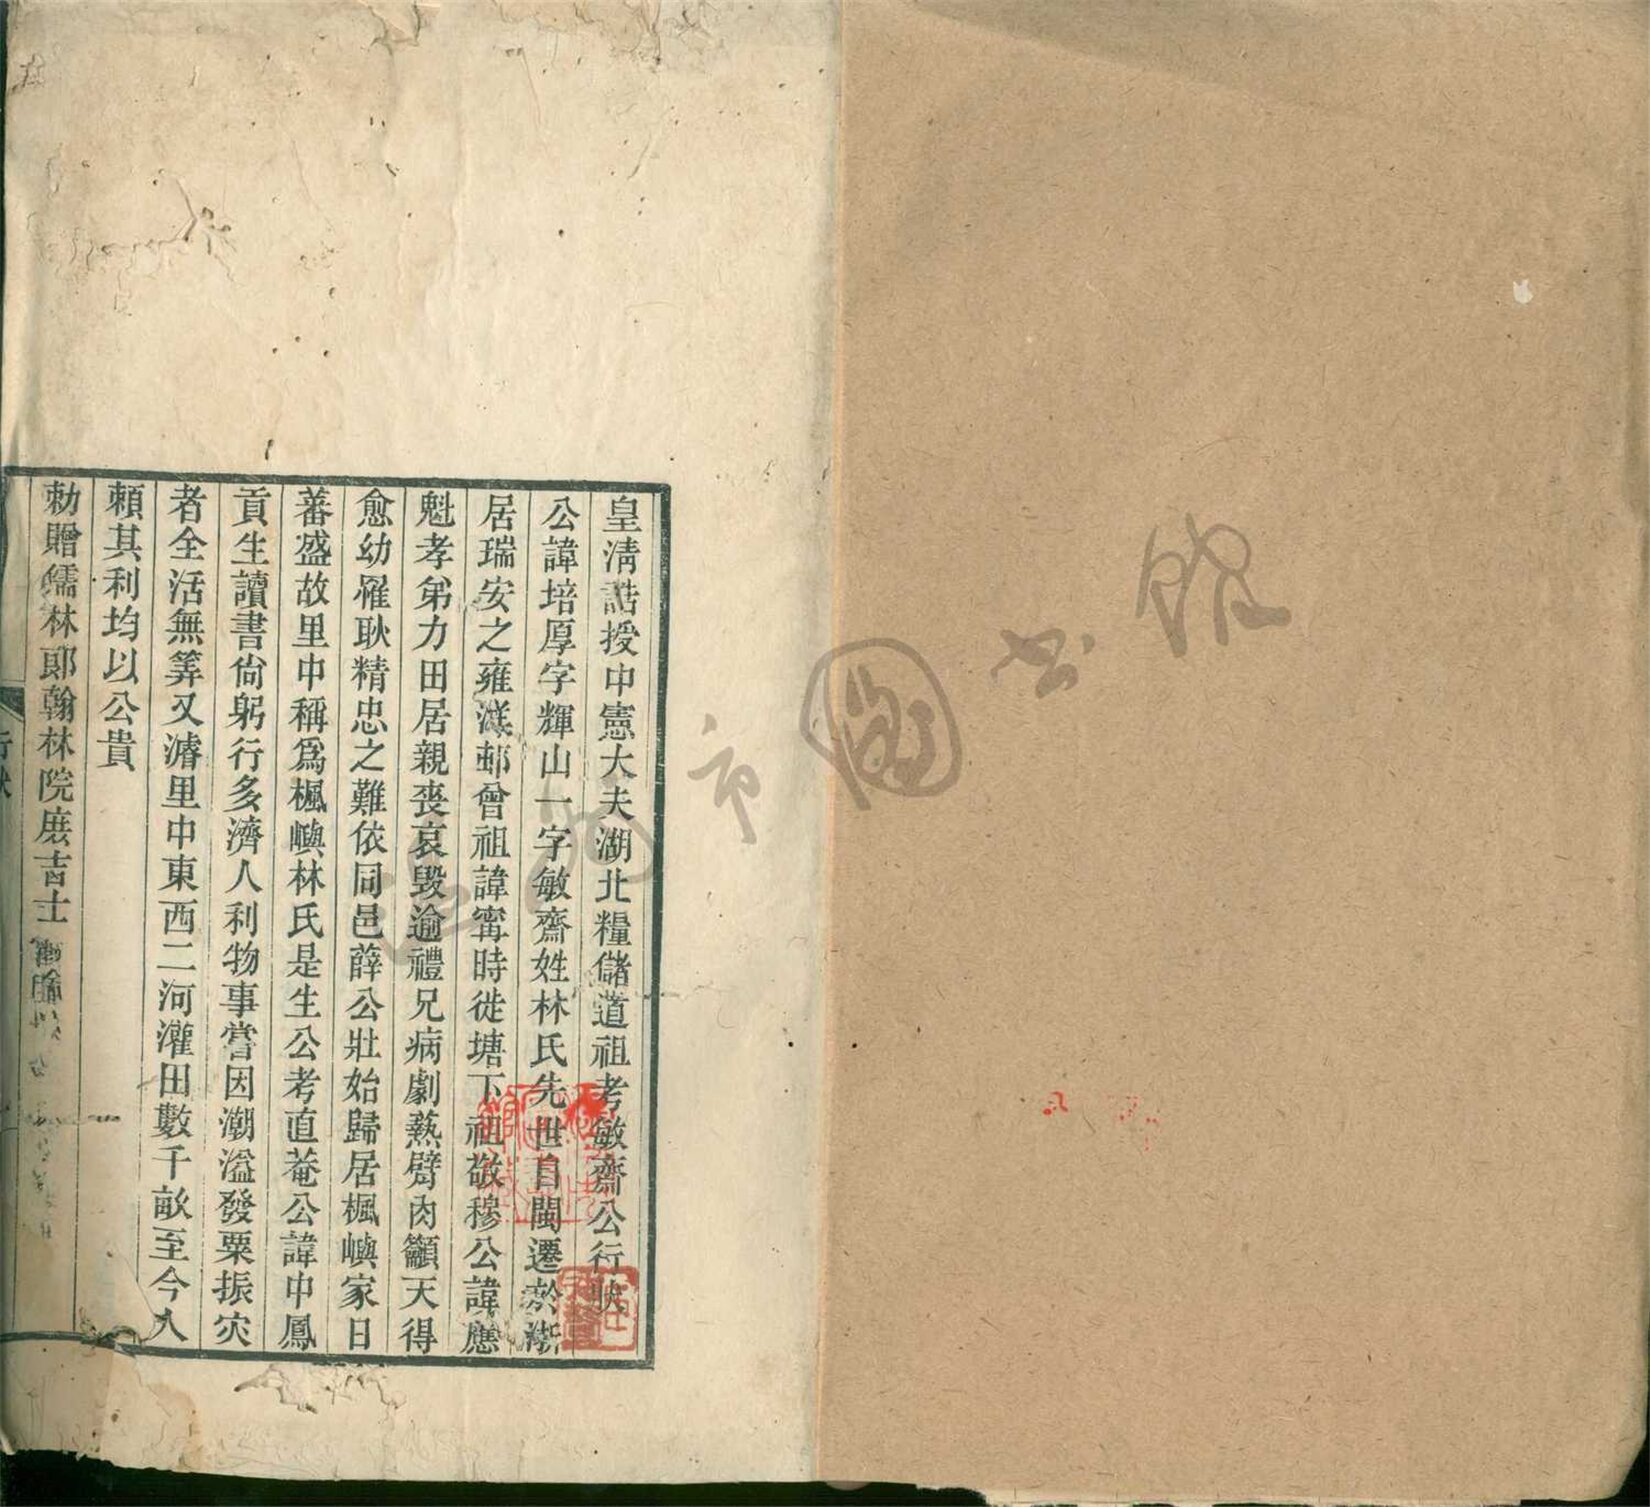 皇清誥授中憲大夫湖北糧儲道祖考敏齋公行狀
公諱培厚字輝山一字敏齋姓林氏先世自閩遷於浙
居瑞安之雍渼邨曾祖諱寗時徙塘下祖敬穆公諱應
魁孝弟力田居親喪哀毁逾禮兄病劇爇臂肉籲天得
愈幼罹耿精忠之難依同邑薛公壯始歸居楓嶼家日
蕃盛故里中稱爲楓嶼林氏是生公考直菴公諱中鳳
貢生讀書尙躬行多濟人利物事嘗因潮溢發粟振灾
者全活無筭又濬里中東西二河灌田數千畝至今人
賴其利均以公貴
勅贈儒林郎翰林院庶吉士
市圖書館